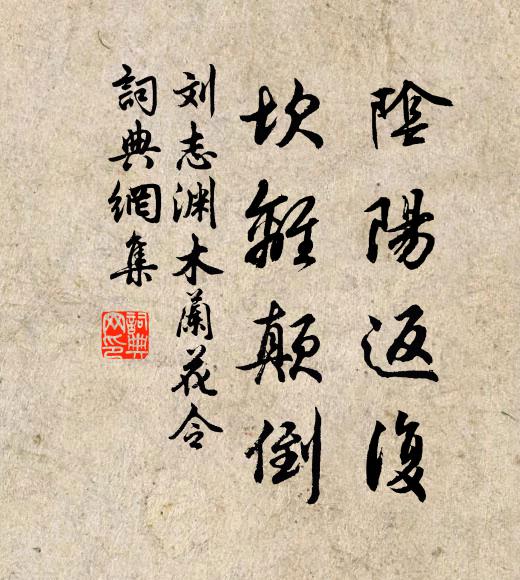 陰陽返復
坎離顛倒
刘志渊木蘭花令
詞典網集
詞典網印